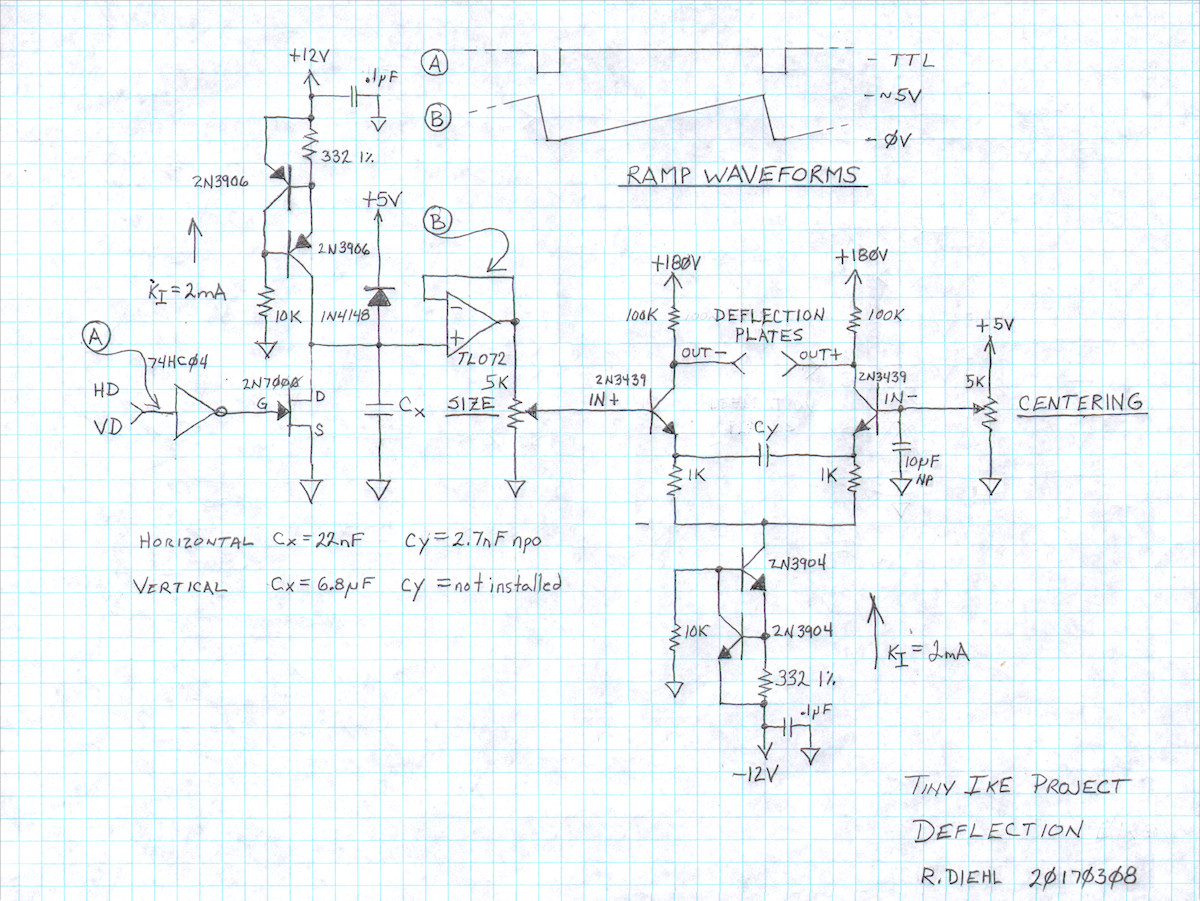 +12V
.1µF
332 1%
2N3906
2N3906
+5V
K_I = 2mA
10K
1N4148
A
B
A
TTL
B
~5V
ØV
RAMP WAVEFORMS
74HCØ4
HD
VD
2N7ØØØ
G
D
S
Cx
-
+
TLØ72
5K
SIZE
+18ØV
+18ØV
100K
DEFLECTION
PLATES
100K
OUT-
OUT+
2N3439
IN+
2N3439
IN-
+5V
5K
CENTERING
Cy
10µF
NP
1K
1K
HORIZONTAL Cx = 22nF Cy = 2.7nF npo
VERTICAL Cx = 6.8µF Cy = not installed
2N3904
10K
2N3904
K_I = 2mA
332 1%
.1µF
-12V
TINY IKE PROJECT
DEFLECTION
R. DIEHL 2Ø17Ø3Ø8